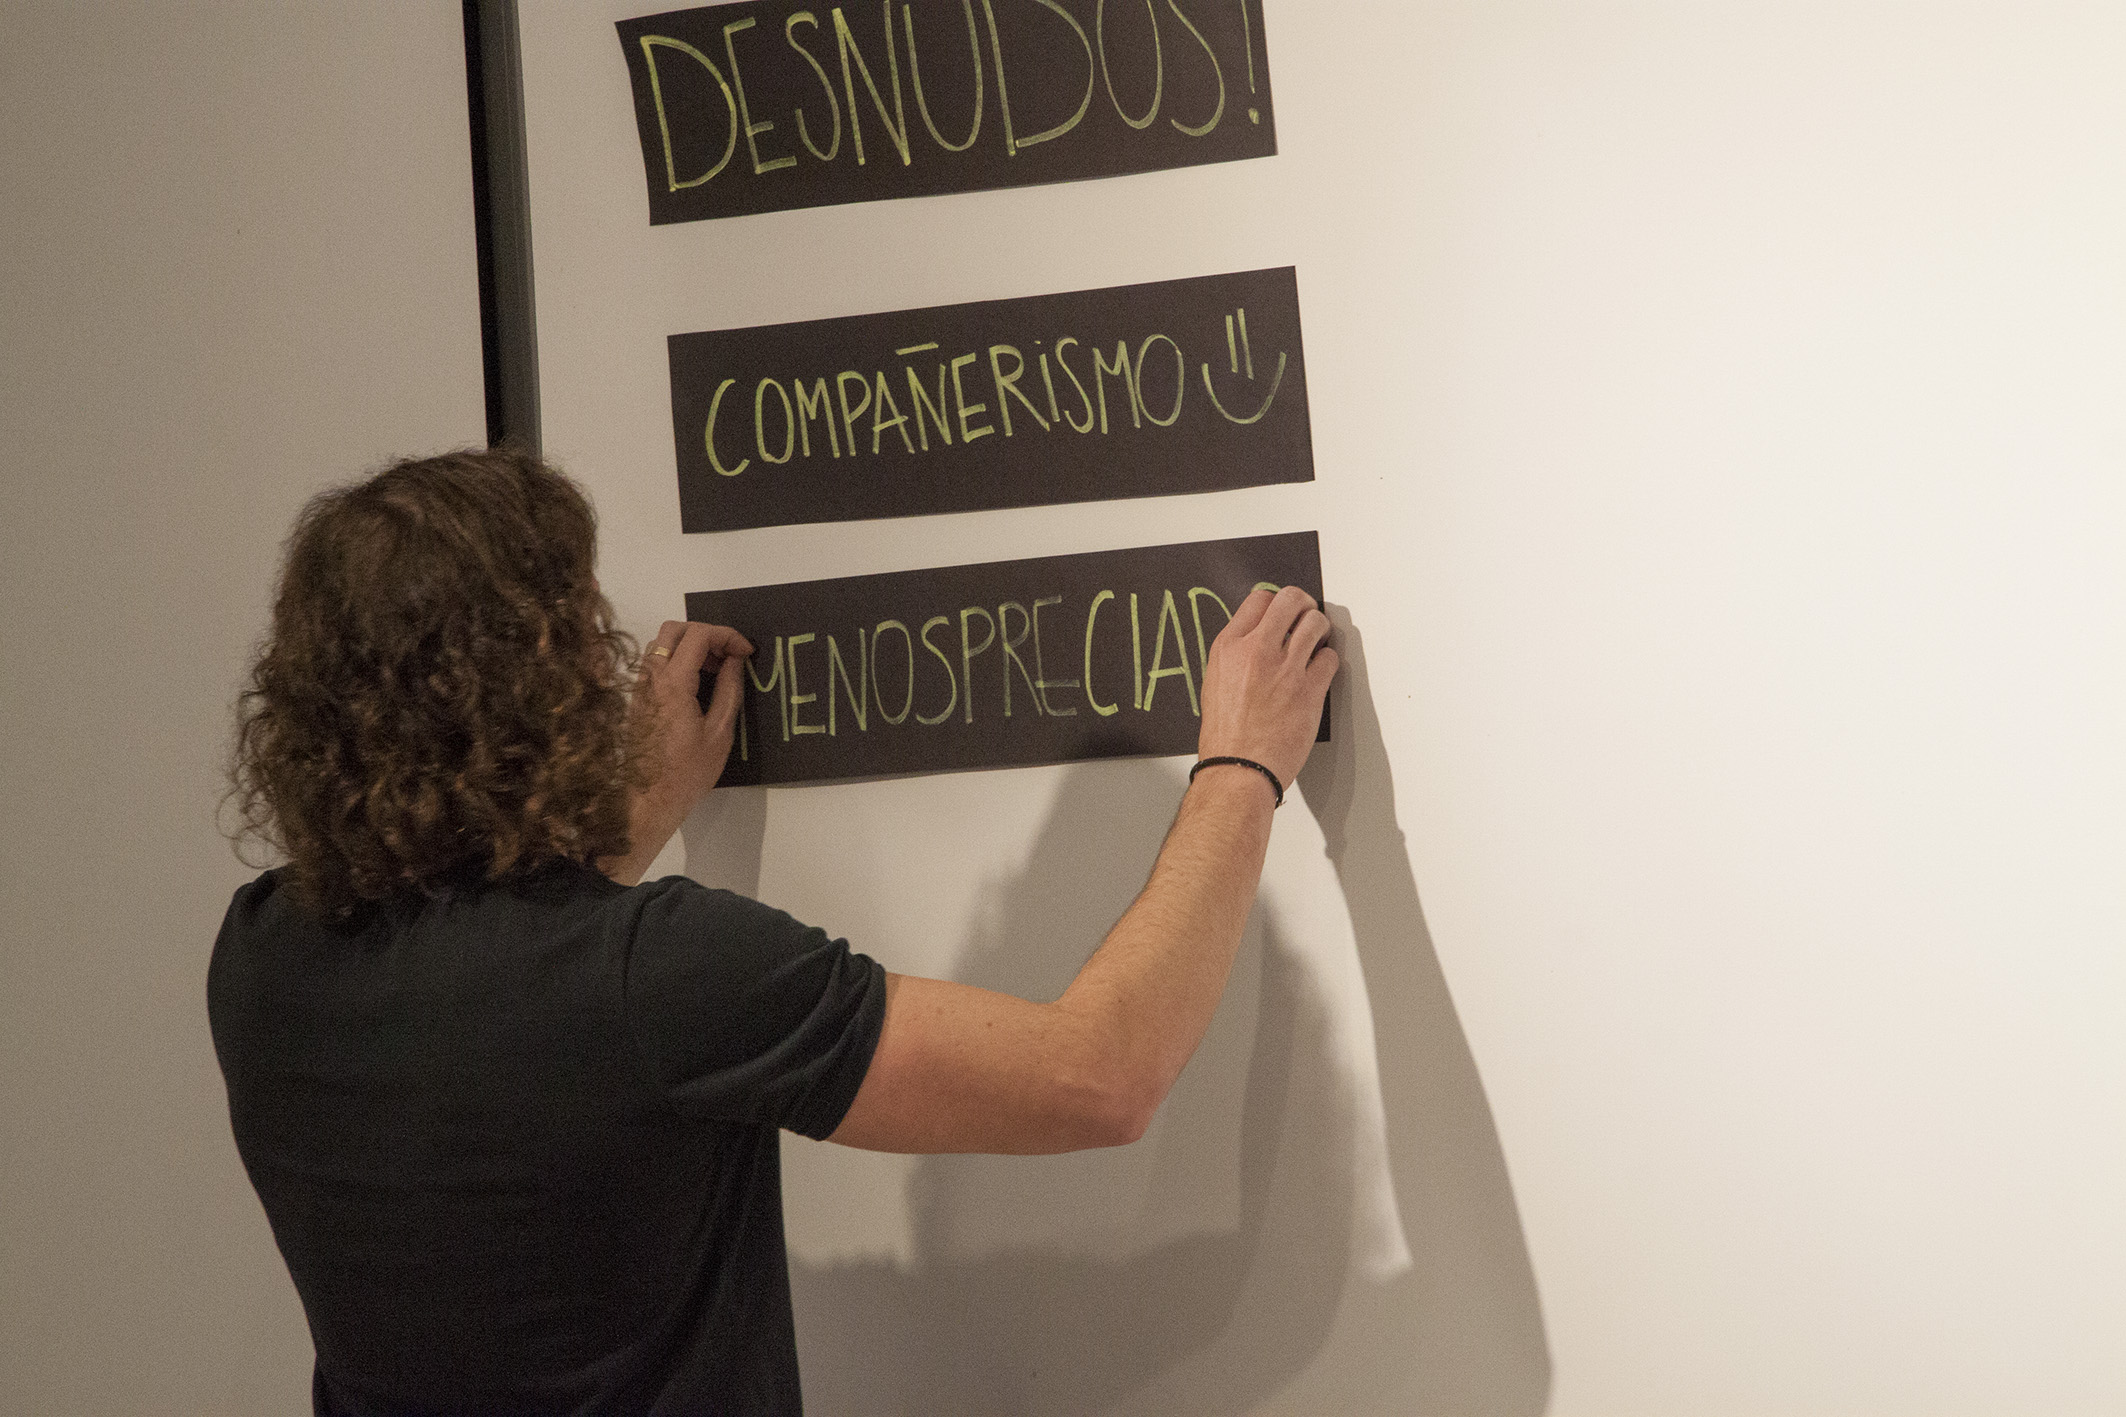 DESNUDOS!
COMPAÑERiSMO
MENOSPRECIADO